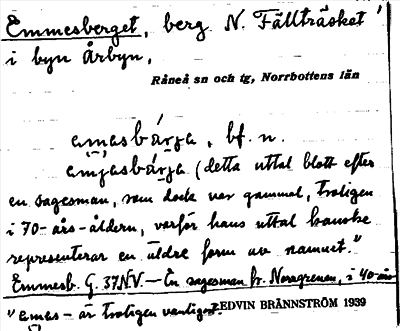 Emmesberget, berg N. Fällträsket
i byn Årbyn,
Råneå sn och tg, Norrbottens län
amasbárja, bf. n.
amjasbárja (detta uttal blott efter
en sagesman, som dock var gammal, troligen
i 70-års-åldern, varför hans uttal kanske
representerar en äldre form av namnet."
Emmesb. G. 37NV. — En sagesman fr. Noragrenen, i 40-års
"emes- är troligen vanligast.
EDVIN BRÄNNSTRÖM 1939